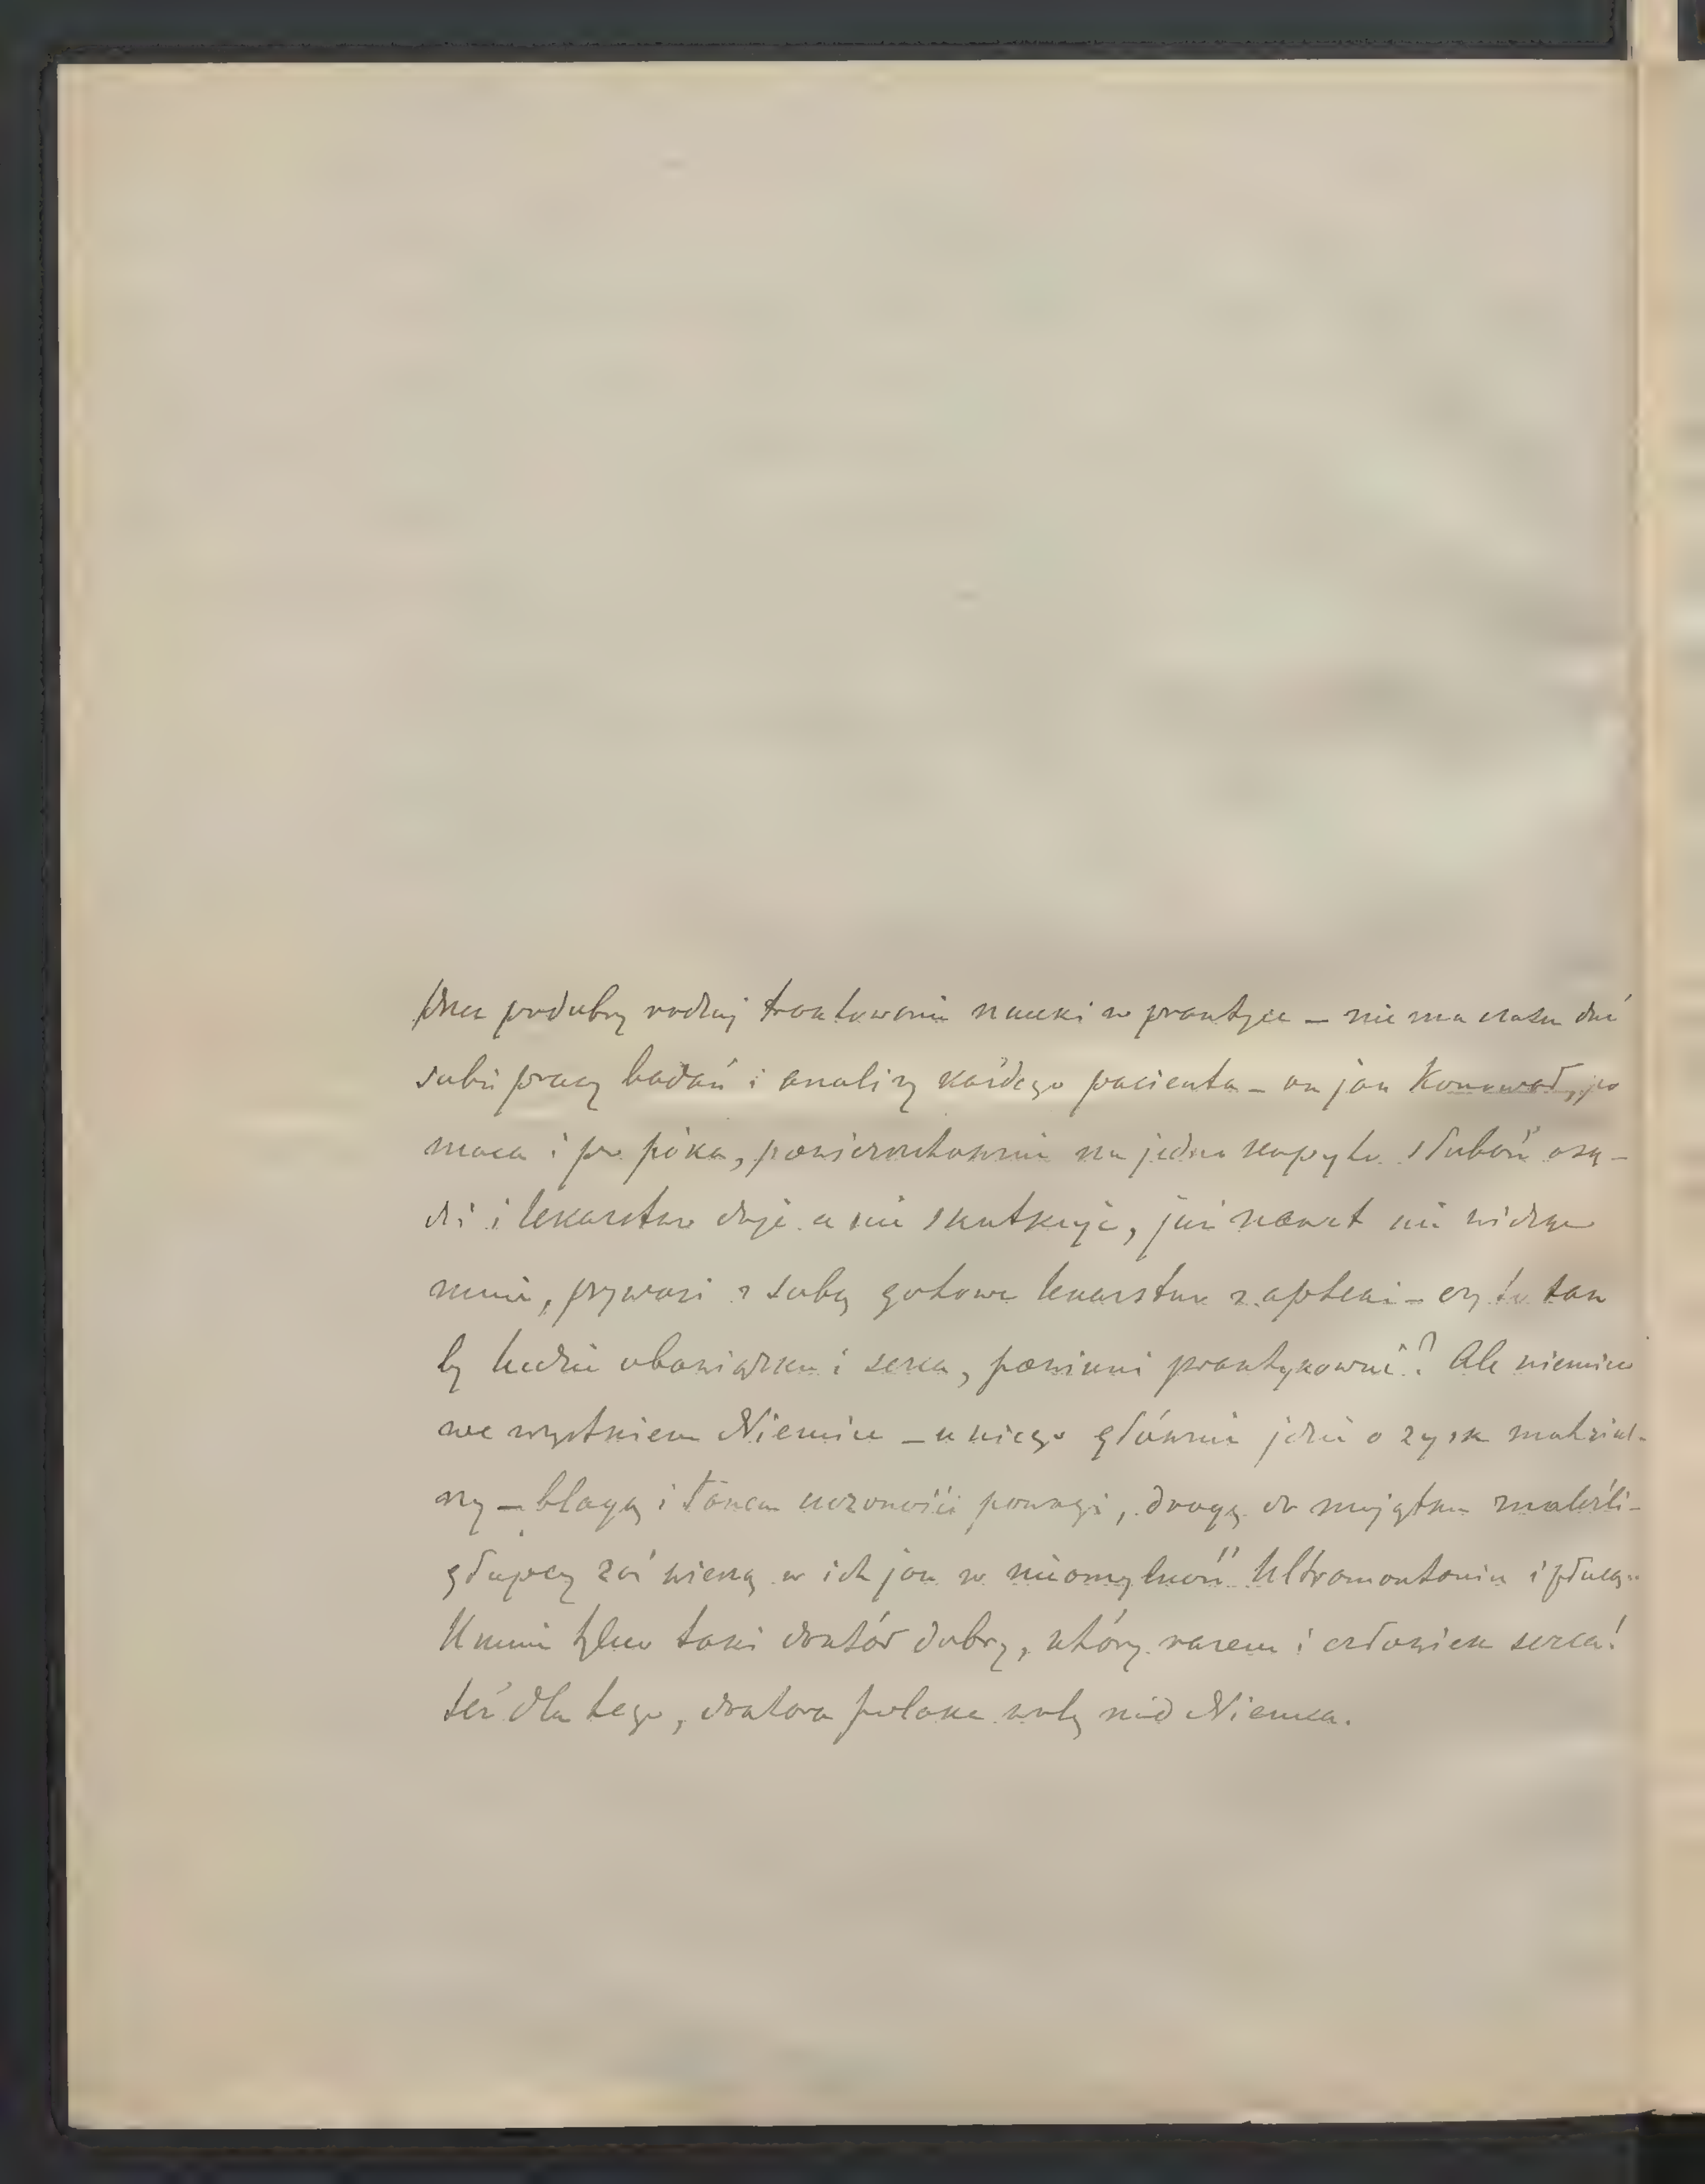 przez podobny rodzaj traktowania nauki w praktyce – nie ma czasu dać
sobie pracy badań i analizy każdego pacienta – on jak Konował, po
maca i po puka, powierzchownie na jedno kopyto słabość osą–
dzi i lekarstwo daje a nie skutkuje, już nawet nie widząc
mnie, przywozi z sobą gotowe lekarstwo z apteki – czy to tak
by ludzie obowiązku i serca, powinni praktykować? Ale niemiec
we wszystkiem Niemiec – u niego głównie idzie o zysk material–
ny – blagą i uczoności powagi, drogę do majątku znaleźli –
głupcy zaś wierzą w ich jak w nieomylność Ultramontanie i płacą..
U mnie tylko taki doktór dobry, który razem i człowiek serca!
też dla tego, doktora polaka wolę niż Niemca.